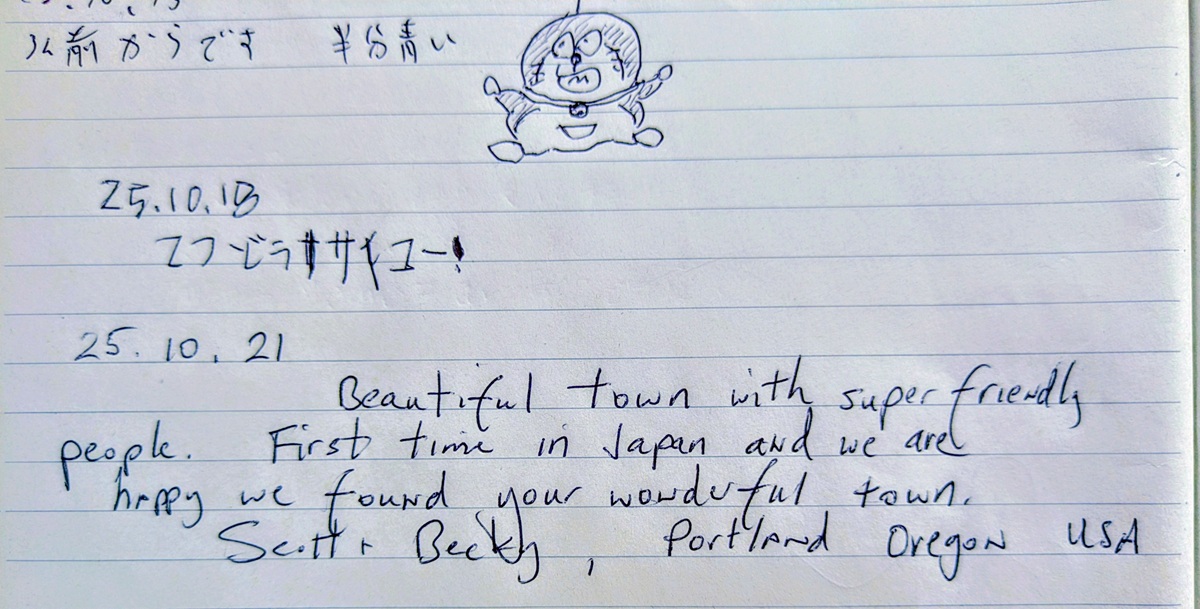 弘前からです 半分青い
25.10.18
サイコー!
25.10.21
Beautiful town with super friendly
people. First time in Japan and we are
happy we found your wonderful town.
Scott + Becky, Portland Oregon USA